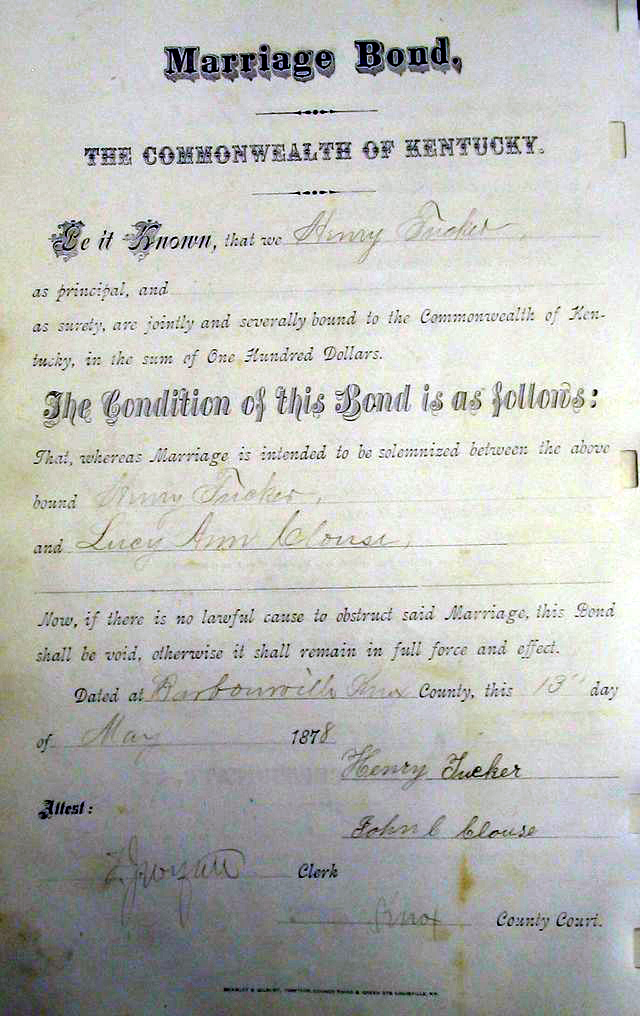 Marriage Bond.
THE COMMONWEALTH OF KENTUCKY.
Be it Known, that we Henry Tucker,
as principal, and
as surety, are jointly and severally bound to the Commonwealth of Ken-
tucky, in the sum of One Hundred Dollars.
The Condition of this Bond is as follows:
That, whereas Marriage is intended to be solemnized between the above
bound Henry Tucker,
and Lucy Ann Clouse,
Now, if there is no lawful cause to obstruct said Marriage, this Bond
shall be void, otherwise it shall remain in full force and effect.
Dated at Barbourville Knox County, this 13" day
of May 1878
Henry Tucker
Attest:
John C Clouse
Clerk
Knox County Court.